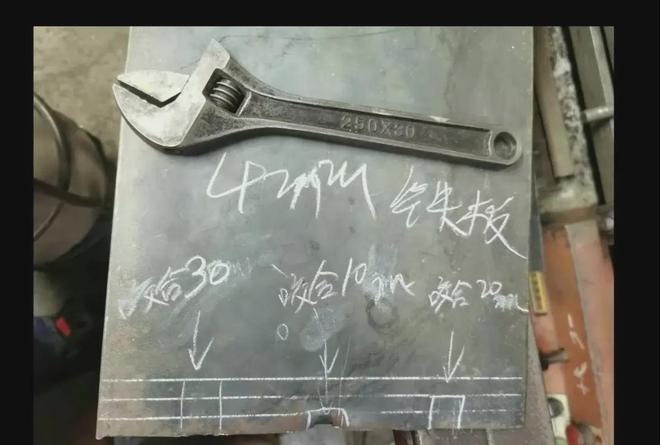 250X30
4mm 铁板
咬合30m 咬合10m 咬合20m